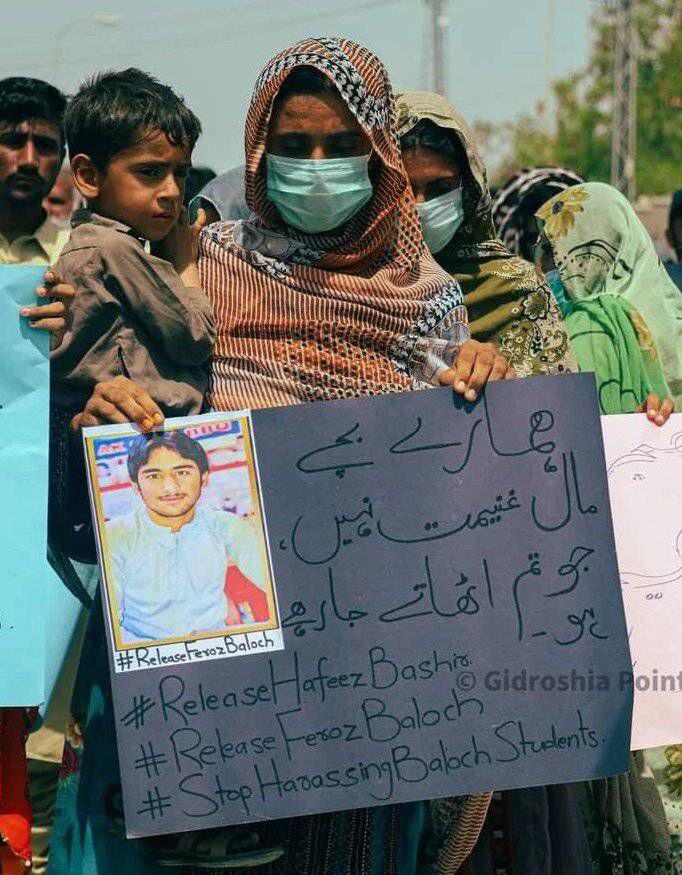 ہمارے بچے
مال غنیمت نہیں،
جو تم اٹھاتے جارہے
ہو۔
#ReleaseFerozBaloch
#ReleaseHafeezBashir.
#Release FerozBaloch
#Stop Harassing Baloch Students.
© Gidroshia Point